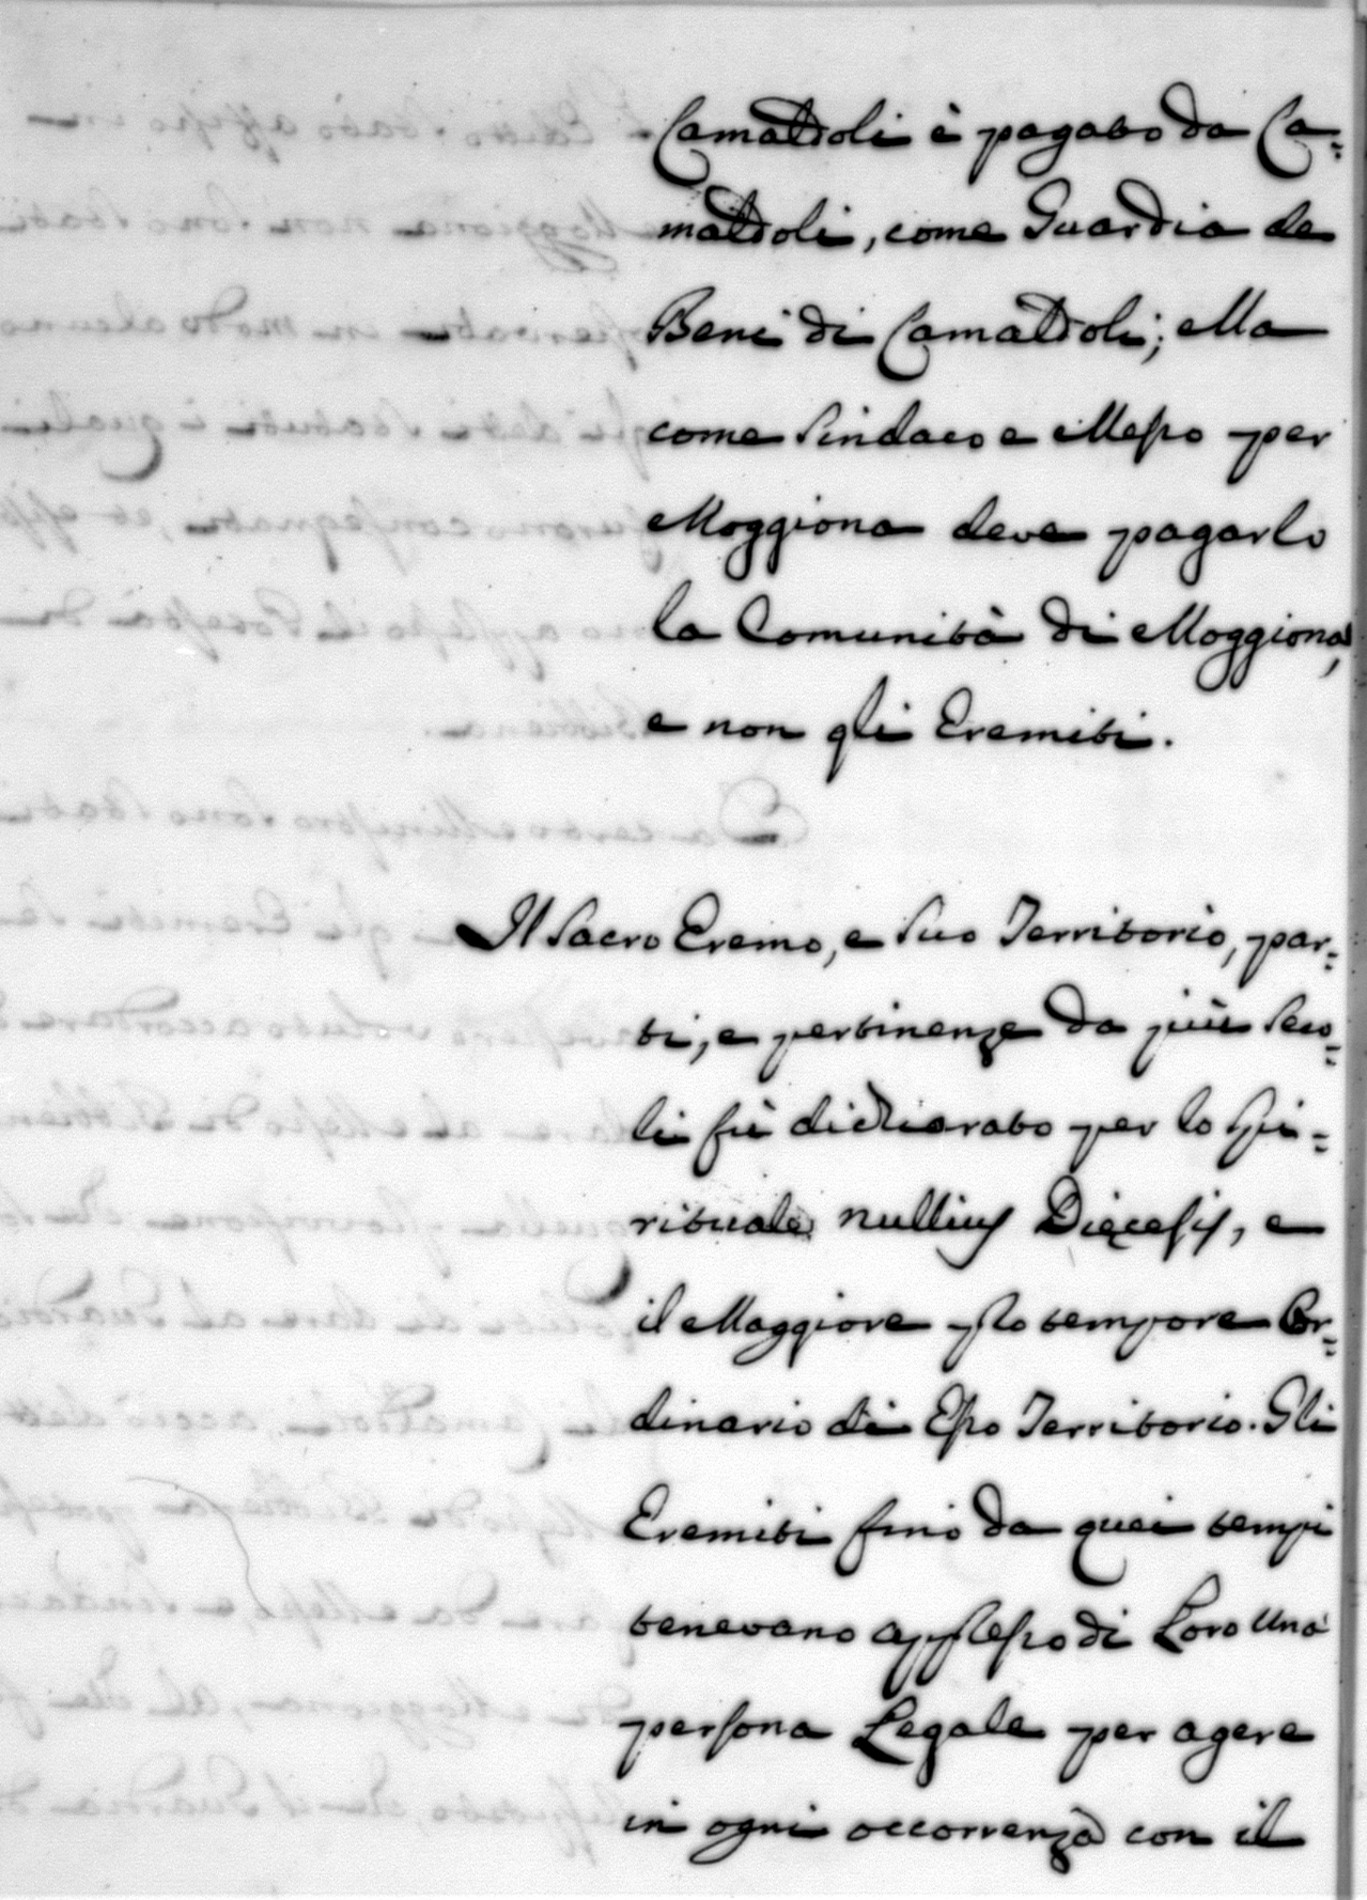 Camaldoli è pagato da Ca=
maldoli, come Guardia de
Beni di Camaldoli; Ma
come Sindaco e Messo per
Moggiona deve pagarlo
la Comunità di Moggiona,
e non gli Eremiti.
Il Sacro Eremo, e suo Territorio, par=
ti, e pertinenze da più seco=
li fù dichiarato per lo Spi=
rituale nullius Dięcesis, e
il Maggiore pro tempore Or=
dinario di Esso Territorio. Gli
Eremiti fino da quei tempi
tenevano appresso di Loro una
persona Legale per agere
in ogni occorrenza con il